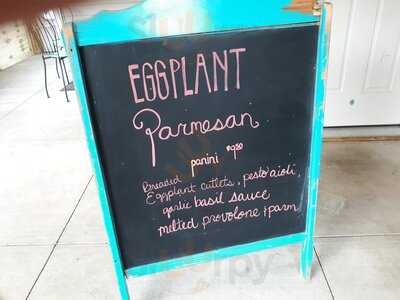 EGGPLANT
Parmesan
panini $9.50
Breaded
Eggplant cutlets, pesto aioli,
garlic basil sauce
melted provolone + parm